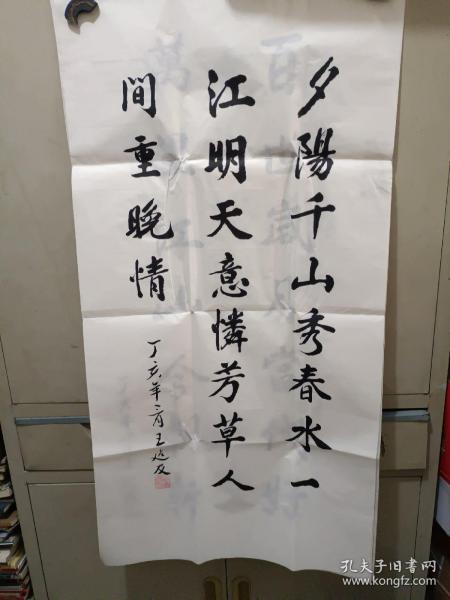 夕陽千山秀春水一
江明天意憐芳草人
間重晚情
丁亥年
孔夫子旧书网
www.kongfz.com